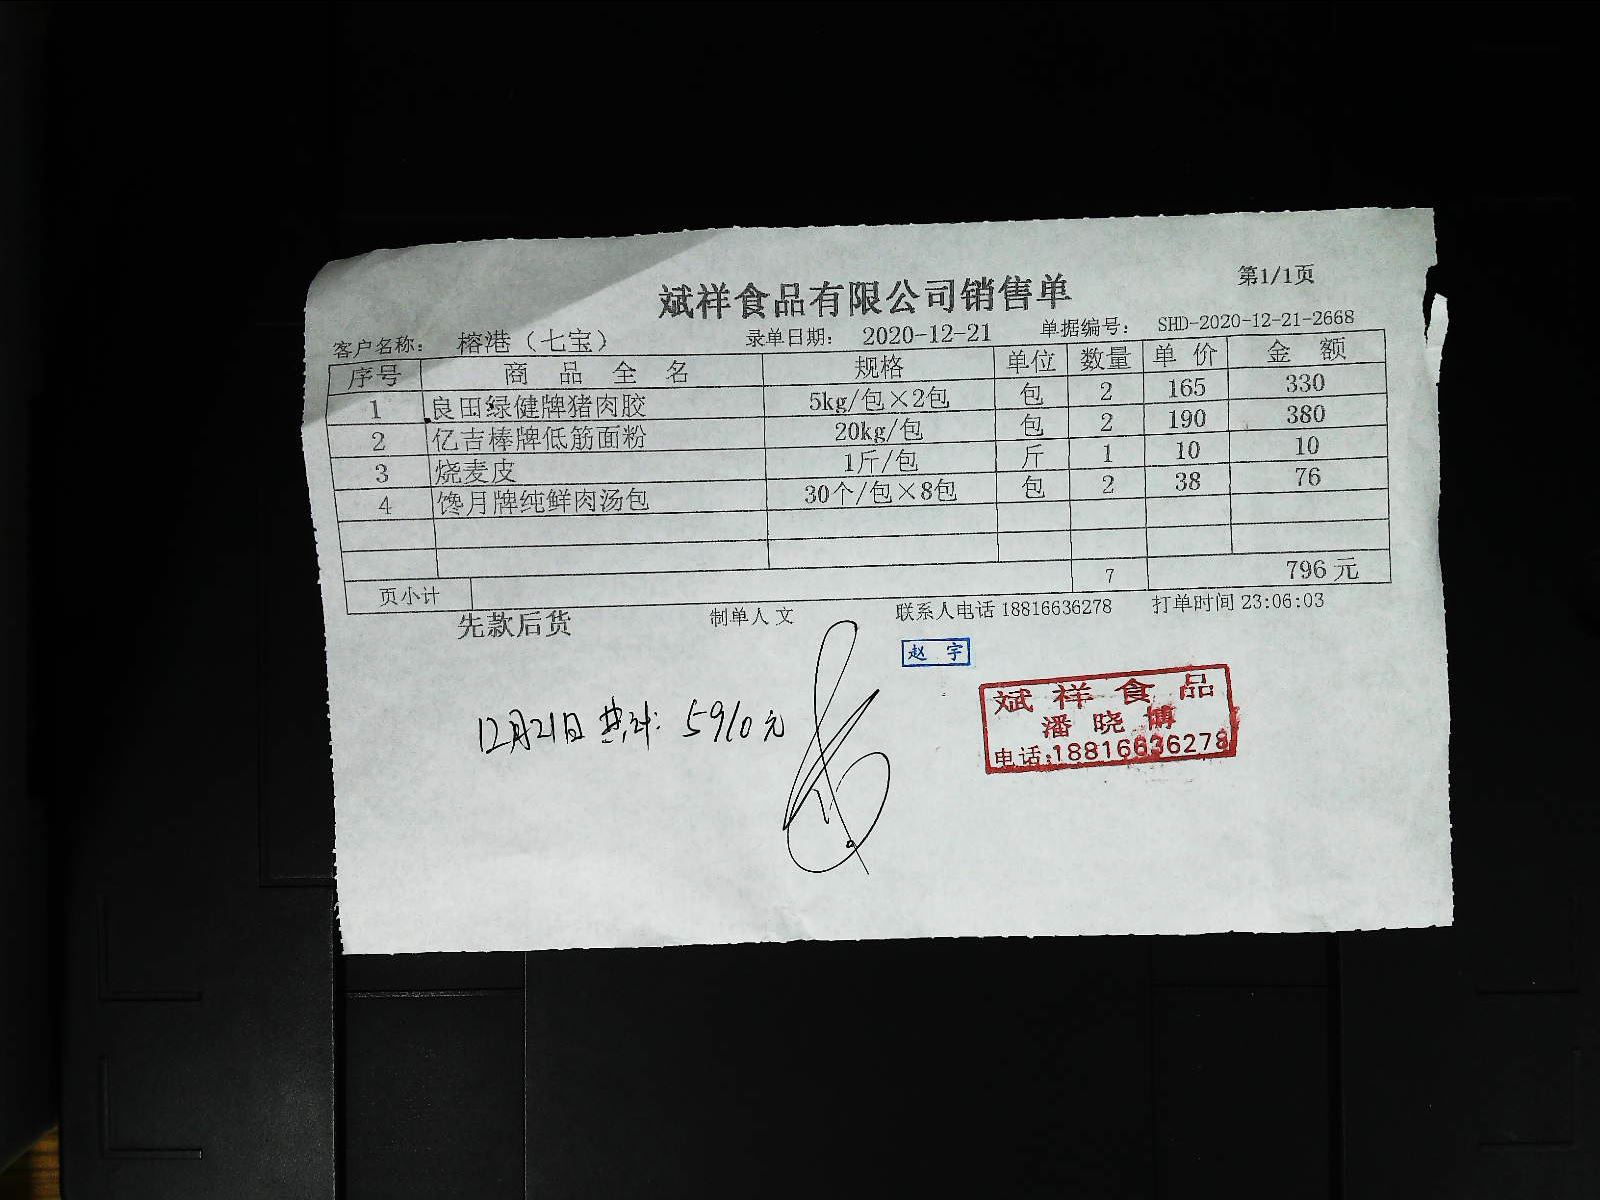 斌祥食品有限公司销售单 第1/1页
客户名称： 榕港（七宝） 录单日期： 2020-12-21 单据编号： SHD-2020-12-21-2668
序号 商品全名 规格 单位 数量 单价 金额
1 良田绿健牌猪肉胶 5kg/包×2包 包 2 165 330
2 亿吉棒牌低筋面粉 20kg/包 包 2 190 380
3 烧麦皮 1斤/包 斤 1 10 10
4 馋月牌纯鲜肉汤包 30个/包×8包 包 2 38 76
页小计 7 796元
先款后货 制单人 文 联系人电话 18816636278 打单时间 23:06:03
赵 宇
12月21日 共计: 5910元
斌祥食品
潘晓博
电话:18816636278